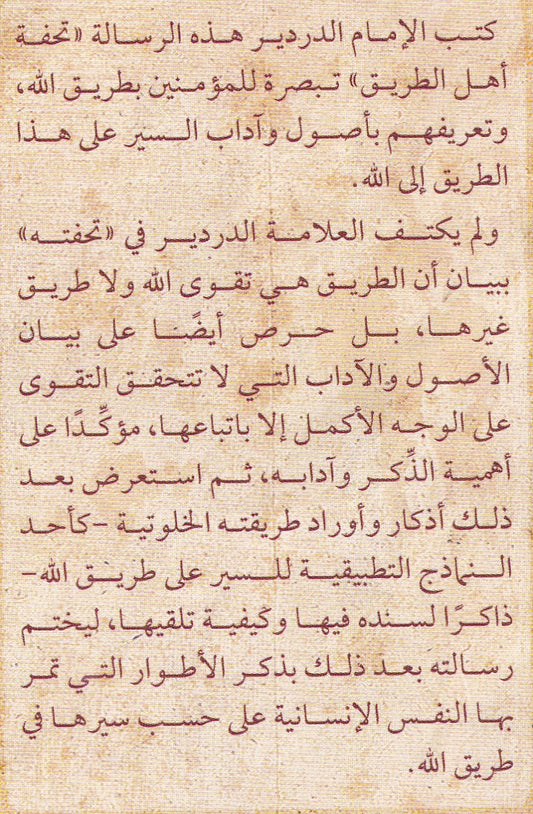 كتب الإمام الدردير هذه الرسالة «تحفة
أهل الطريق» تبصرة للمؤمنين بطريق الله،
وتعريفهم بأصول وآداب السير على هذا
الطريق إلى الله.
ولم يكتف العلامة الدردير في «تحفته»
ببيان أن الطريق هي تقوى الله ولا طريق
غيرها، بل حرص أيضًا على بيان
الأصول والآداب التي لا تتحقق التقوى
على الوجه الأكمل إلا باتباعها، مؤكِّدًا على
أهمية الذِّكر وآدابه، ثم استعرض بعد
ذلك أذكار وأوراد طريقته الخلوتية -كأحد
النماذج التطبيقية للسير على طريق الله-
ذاكرًا لسنده فيها وكيفية تلقيها، ليختم
رسالته بعد ذلك بذكر الأطوار التي تمر
بها النفس الإنسانية على حسب سيرها في
طريق الله.